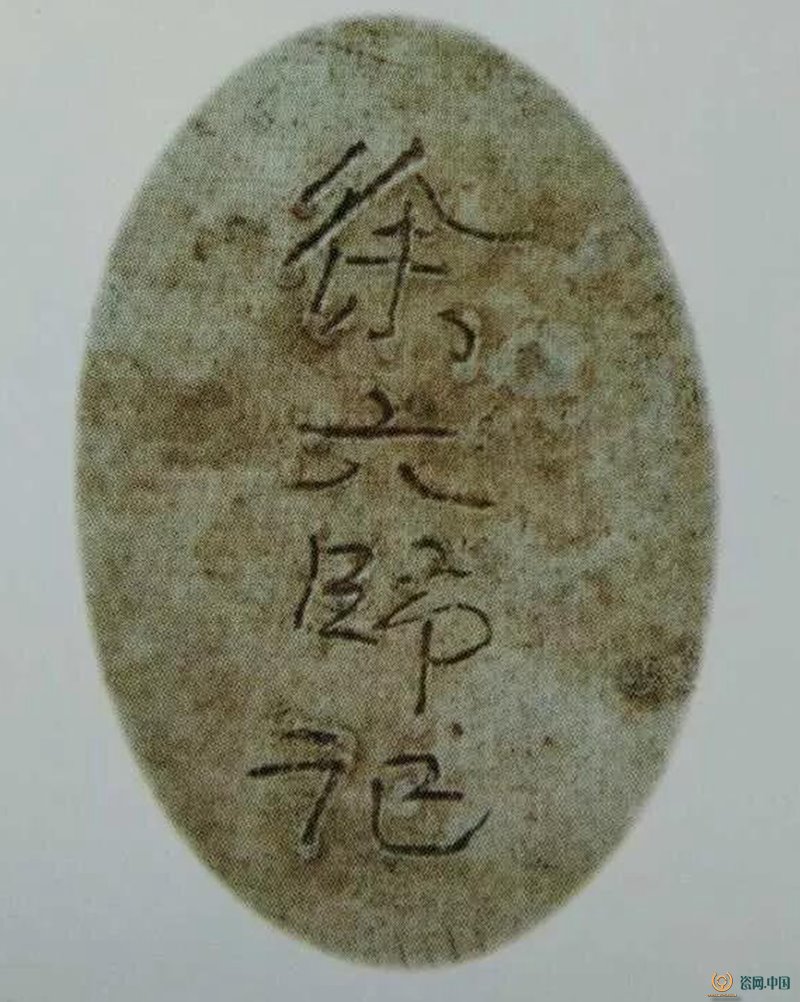 徐六師记
瓷网.中国